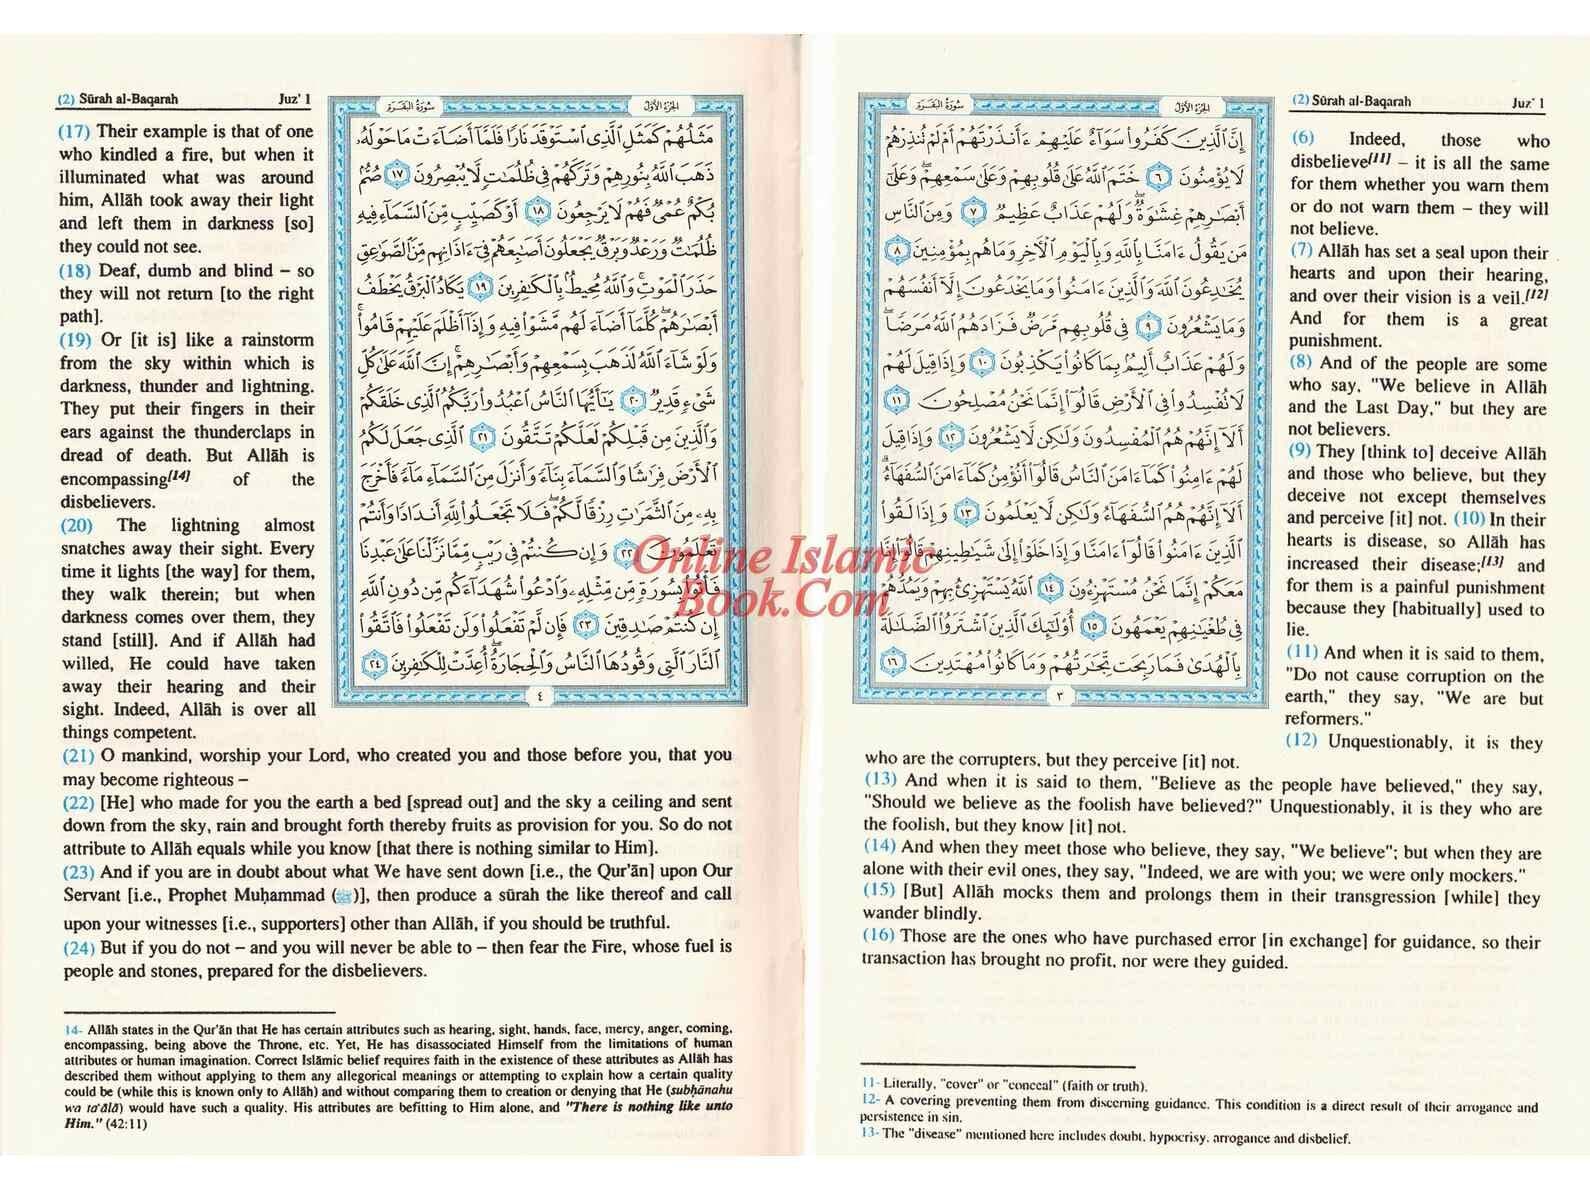 (2) Sūrah al-Baqarah Juz' 1
الجزء الأول سورة البقرة
إِنَّ ٱلَّذِينَ كَفَرُوا۟ سَوَآءٌ عَلَيْهِمْ ءَأَنذَرْتَهُمْ أَمْ لَمْ تُنذِرْهُمْ
لَا يُؤْمِنُونَ ٦ خَتَمَ ٱللَّهُ عَلَىٰ قُلُوبِهِمْ وَعَلَىٰ سَمْعِهِمْ ۖ وَعَلَىٰٓ
أَبْصَٰرِهِمْ غِشَٰوَةٌ ۖ وَلَهُمْ عَذَابٌ عَظِيمٌ ٧ وَمِنَ ٱلنَّاسِ
مَن يَقُولُ ءَامَنَّا بِٱللَّهِ وَبِٱلْيَوْمِ ٱلْءَاخِرِ وَمَا هُم بِمُؤْمِنِينَ ٨
يُخَٰدِعُونَ ٱللَّهَ وَٱلَّذِينَ ءَامَنُوا۟ وَمَا يَخْدَعُونَ إِلَّآ أَنفُسَهُمْ
وَمَا يَشْعُرُونَ ٩ فِى قُلُوبِهِم مَّرَضٌ فَزَادَهُمُ ٱللَّهُ مَرَضًا ۖ
وَلَهُمْ عَذَابٌ أَلِيمٌۢ بِمَا كَانُوا۟ يَكْذِبُونَ ١٠ وَإِذَا قِيلَ لَهُمْ
لَا تُفْسِدُوا۟ فِى ٱلْأَرْضِ قَالُوٓا۟ إِنَّمَا نَحْنُ مُصْلِحُونَ ١١
أَلَآ إِنَّهُمْ هُمُ ٱلْمُفْسِدُونَ وَلَٰكِن لَّا يَشْعُرُونَ ١٢ وَإِذَا قِيلَ
لَهُمْ ءَامِنُوا۟ كَمَآ ءَامَنَ ٱلنَّاسُ قَالُوٓا۟ أَنُؤْمِنُ كَمَآ ءَامَنَ ٱلسُّفَهَآءُ ۗ
أَلَآ إِنَّهُمْ هُمُ ٱلسُّفَهَآءُ وَلَٰكِن لَّا يَعْلَمُونَ ١٣ وَإِذَا لَقُوا۟
ٱلَّذِينَ ءَامَنُوا۟ قَالُوٓا۟ ءَامَنَّا وَإِذَا خَلَوْا۟ إِلَىٰ شَيَٰطِينِهِمْ قَالُوٓا۟ إِنَّا
مَعَكُمْ إِنَّمَا نَحْنُ مُسْتَهْزِءُونَ ١٤ ٱللَّهُ يَسْتَهْزِئُ بِهِمْ وَيَمُدُّهُمْ
فِى طُغْيَٰنِهِمْ يَعْمَهُونَ ١٥ أُو۟لَٰٓئِكَ ٱلَّذِينَ ٱشْتَرَوُا۟ ٱلضَّلَٰلَةَ
بِٱلْهُدَىٰ فَمَا رَبِحَت تِّجَٰرَتُهُمْ وَمَا كَانُوا۟ مُهْتَدِينَ ١٦
٣
(6) Indeed, those who
disbelieve[11] – it is all the same
for them whether you warn them
or do not warn them – they will
not believe.
(7) Allāh has set a seal upon their
hearts and upon their hearing,
and over their vision is a veil.[12]
And for them is a great
punishment.
(8) And of the people are some
who say, "We believe in Allāh
and the Last Day," but they are
not believers.
(9) They [think to] deceive Allāh
and those who believe, but they
deceive not except themselves
and perceive [it] not. (10) In their
hearts is disease, so Allāh has
increased their disease;[13] and
for them is a painful punishment
because they [habitually] used to
lie.
(11) And when it is said to them,
"Do not cause corruption on the
earth," they say, "We are but
reformers."
(12) Unquestionably, it is they
who are the corrupters, but they perceive [it] not.
(13) And when it is said to them, "Believe as the people have believed," they say,
"Should we believe as the foolish have believed?" Unquestionably, it is they who are
the foolish, but they know [it] not.
(14) And when they meet those who believe, they say, "We believe"; but when they are
alone with their evil ones, they say, "Indeed, we are with you; we were only mockers."
(15) [But] Allāh mocks them and prolongs them in their transgression [while] they
wander blindly.
(16) Those are the ones who have purchased error [in exchange] for guidance, so their
transaction has brought no profit, nor were they guided.
11- Literally, "cover" or "conceal" (faith or truth).
12- A covering preventing them from discerning guidance. This condition is a direct result of their arrogance and
persistence in sin.
13- The "disease" mentioned here includes doubt, hypocrisy, arrogance and disbelief.
(2) Sūrah al-Baqarah Juz' 1
الجزء الأول سورة البقرة
مَثَلُهُمْ كَمَثَلِ ٱلَّذِى ٱسْتَوْقَدَ نَارًا فَلَمَّآ أَضَآءَتْ مَا حَوْلَهُۥ
ذَهَبَ ٱللَّهُ بِنُورِهِمْ وَتَرَكَهُمْ فِى ظُلُمَٰتٍ لَّا يُبْصِرُونَ ١٧ صُمٌّۢ
بُكْمٌ عُمْىٌ فَهُمْ لَا يَرْجِعُونَ ١٨ أَوْ كَصَيِّبٍ مِّنَ ٱلسَّمَآءِ فِيهِ
ظُلُمَٰتٌ وَرَعْدٌ وَبَرْقٌ يَجْعَلُونَ أَصَٰبِعَهُمْ فِىٓ ءَاذَانِهِم مِّنَ ٱلصَّوَٰعِقِ
حَذَرَ ٱلْمَوْتِ ۚ وَٱللَّهُ مُحِيطٌۢ بِٱلْكَٰفِرِينَ ١٩ يَكَادُ ٱلْبَرْقُ يَخْطَفُ
أَبْصَٰرَهُمْ ۖ كُلَّمَآ أَضَآءَ لَهُم مَّشَوْا۟ فِيهِ وَإِذَآ أَظْلَمَ عَلَيْهِمْ قَامُوا۟ ۚ
وَلَوْ شَآءَ ٱللَّهُ لَذَهَبَ بِسَمْعِهِمْ وَأَبْصَٰرِهِمْ ۚ إِنَّ ٱللَّهَ عَلَىٰ كُلِّ
شَىْءٍ قَدِيرٌ ٢٠ يَٰٓأَيُّهَا ٱلنَّاسُ ٱعْبُدُوا۟ رَبَّكُمُ ٱلَّذِى خَلَقَكُمْ
وَٱلَّذِينَ مِن قَبْلِكُمْ لَعَلَّكُمْ تَتَّقُونَ ٢١ ٱلَّذِى جَعَلَ لَكُمُ
ٱلْأَرْضَ فِرَٰشًا وَٱلسَّمَآءَ بِنَآءً وَأَنزَلَ مِنَ ٱلسَّمَآءِ مَآءً فَأَخْرَجَ
بِهِۦ مِنَ ٱلثَّمَرَٰتِ رِزْقًا لَّكُمْ ۖ فَلَا تَجْعَلُوا۟ لِلَّهِ أَندَادًا وَأَنتُمْ
تَعْلَمُونَ ٢٢ وَإِن كُنتُمْ فِى رَيْبٍ مِّمَّا نَزَّلْنَا عَلَىٰ عَبْدِنَا
فَأْتُوا۟ بِسُورَةٍ مِّن مِّثْلِهِۦ وَٱدْعُوا۟ شُهَدَآءَكُم مِّن دُونِ ٱللَّهِ
إِن كُنتُمْ صَٰدِقِينَ ٢٣ فَإِن لَّمْ تَفْعَلُوا۟ وَلَن تَفْعَلُوا۟ فَٱتَّقُوا۟
ٱلنَّارَ ٱلَّتِى وَقُودُهَا ٱلنَّاسُ وَٱلْحِجَارَةُ ۖ أُعِدَّتْ لِلْكَٰفِرِينَ ٢٤
٤
(17) Their example is that of one
who kindled a fire, but when it
illuminated what was around
him, Allāh took away their light
and left them in darkness [so]
they could not see.
(18) Deaf, dumb and blind – so
they will not return [to the right
path].
(19) Or [it is] like a rainstorm
from the sky within which is
darkness, thunder and lightning.
They put their fingers in their
ears against the thunderclaps in
dread of death. But Allāh is
encompassing[14] of the
disbelievers.
(20) The lightning almost
snatches away their sight. Every
time it lights [the way] for them,
they walk therein; but when
darkness comes over them, they
stand [still]. And if Allāh had
willed, He could have taken
away their hearing and their
sight. Indeed, Allāh is over all
things competent.
(21) O mankind, worship your Lord, who created you and those before you, that you
may become righteous –
(22) [He] who made for you the earth a bed [spread out] and the sky a ceiling and sent
down from the sky, rain and brought forth thereby fruits as provision for you. So do not
attribute to Allāh equals while you know [that there is nothing similar to Him].
(23) And if you are in doubt about what We have sent down [i.e., the Qur'ān] upon Our
Servant [i.e., Prophet Muḥammad (ﷺ)], then produce a sūrah the like thereof and call
upon your witnesses [i.e., supporters] other than Allāh, if you should be truthful.
(24) But if you do not – and you will never be able to – then fear the Fire, whose fuel is
people and stones, prepared for the disbelievers.
14- Allāh states in the Qur'ān that He has certain attributes such as hearing, sight, hands, face, mercy, anger, coming,
encompassing, being above the Throne, etc. Yet, He has disassociated Himself from the limitations of human
attributes or human imagination. Correct Islāmic belief requires faith in the existence of these attributes as Allāh has
described them without applying to them any allegorical meanings or attempting to explain how a certain quality
could be (while this is known only to Allāh) and without comparing them to creation or denying that He (subḥānahu
wa taʿālā) would have such a quality. His attributes are befitting to Him alone, and "There is nothing like unto
Him." (42:11)
Online Islamic
Book.Com